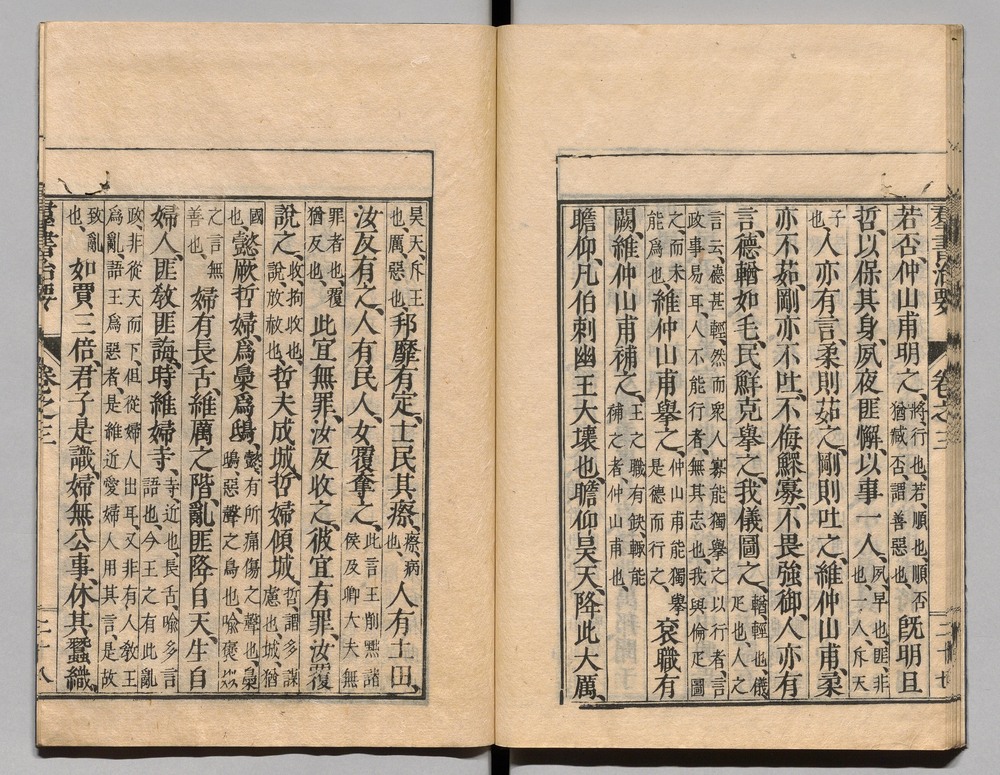 羣書治要 卷之三 二十七
若否、仲山甫明之、將行也、若順也、順否猶臧否、謂善惡也、旣明且
哲、以保其身、夙夜匪懈、以事一人、夙早也、匪非也、一人斥天
子也、人亦有言、柔則茹之、剛則吐之、維仲山甫、柔
亦不茹、剛亦不吐、不侮鰥寡、不畏強御、人亦有
言、德輶如毛、民鮮克舉之、我儀圖之、輶輕也儀疋也、人之
言云、德甚輕、然而衆人寡能獨擧之以行者、言政事易耳、人不能行者、無其志也、我與倫疋圖
之、而未能爲也、維仲山甫舉之、仲山甫能獨擧是德而行之、袞職有
闕、維仲山甫補之、王之職有缺、輙能補之者、仲山甫也、
瞻仰、凡伯刺幽王大壞也、瞻仰昊天、降此大厲、
昊天、斥王也、厲、惡也、邦靡有定、士民其瘵、瘵、病也、人有土田、
汝反有之、人有民人、女覆奪之、此言王削黜諸侯及卿大夫無
罪者也、覆猶反也、此宜無罪、汝反收之、彼宜有罪、汝覆
說之、收拘收也、說放赦也、哲夫成城、哲婦傾城、哲謂多謀慮也、城猶
國也、懿厥哲婦、爲梟爲鴟、懿有所痛傷之聲也、梟鴟、惡聲之鳥也、喩褒姒
之言無善也、婦有長舌、維厲之階、亂匪降自天、生自
婦人、匪敎匪誨、時維婦寺、寺、近也、長舌、喩多言語也、今王之有此亂
政、非從天而下、但從婦人出耳、又非有人敎王爲亂、語王爲惡者、是維近愛婦人用其言、是故
致亂也、如賈三倍、君子是識、婦無公事、休其蠶織、
羣書治要 卷之三 二十八